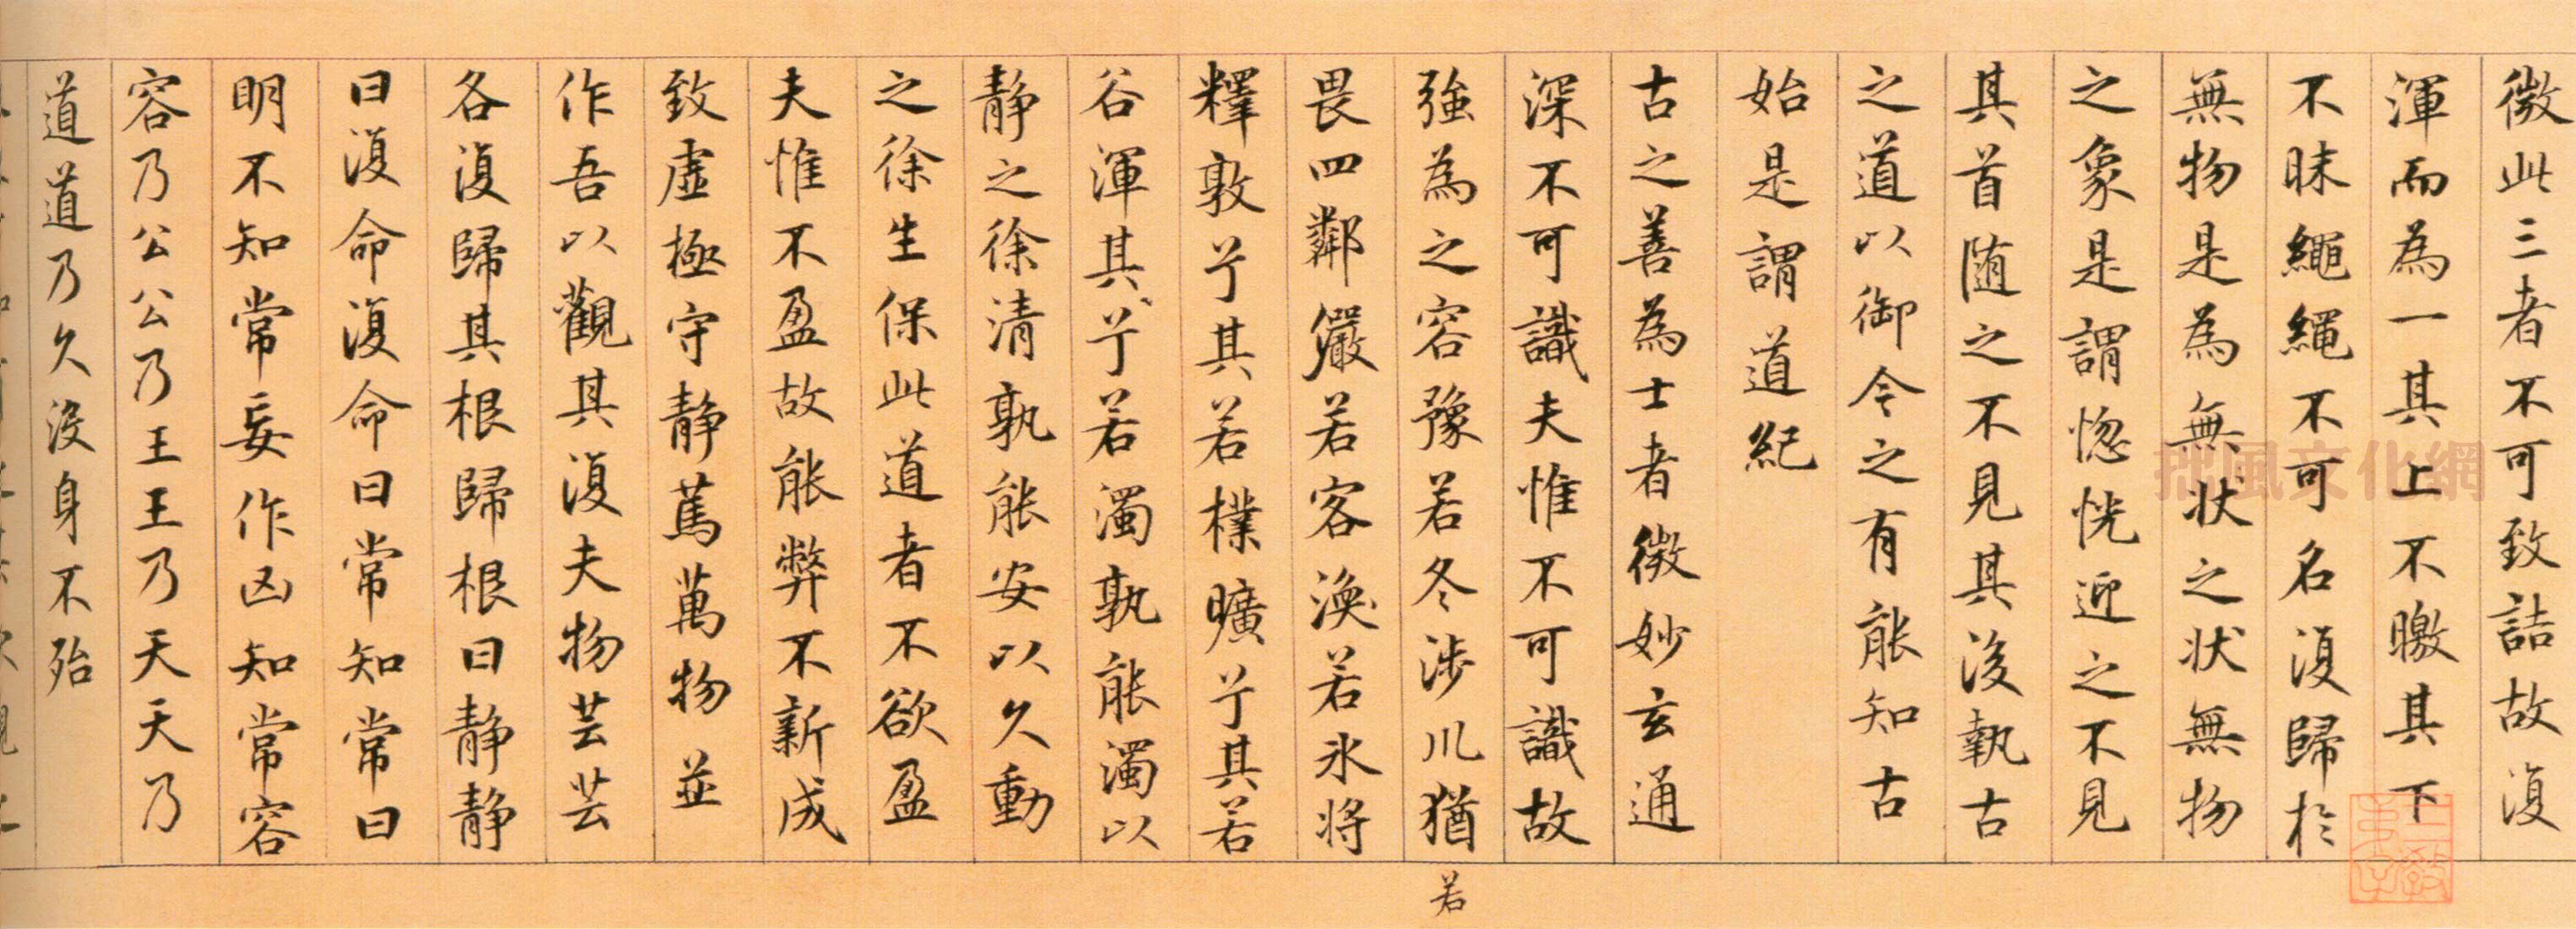 微此三者不可致詰故復
渾而為一其上不曒其下
不昧繩繩不可名復歸於
無物是為無状之状無物
之象是謂惚恍迎之不見
其首随之不見其後執古
之道以御今之有能知古
始是謂道紀
古之善為士者微妙玄通
深不可識夫惟不可識故
強為之容豫若冬涉川猶
若
畏四鄰儼若客渙若氷将
釋敦兮其若樸曠兮其若
谷渾其兮若濁孰能濁以
静之徐清孰能安以久動
之徐生保此道者不欲盈
夫惟不盈故能弊不新成
致虛極守静篤萬物並
作吾以觀其復夫物芸芸
各復歸其根歸根曰静静
曰復命復命曰常知常曰
明不知常妄作凶知常容
容乃公公乃王王乃天天乃
道道乃久没身不殆
拙風文化網